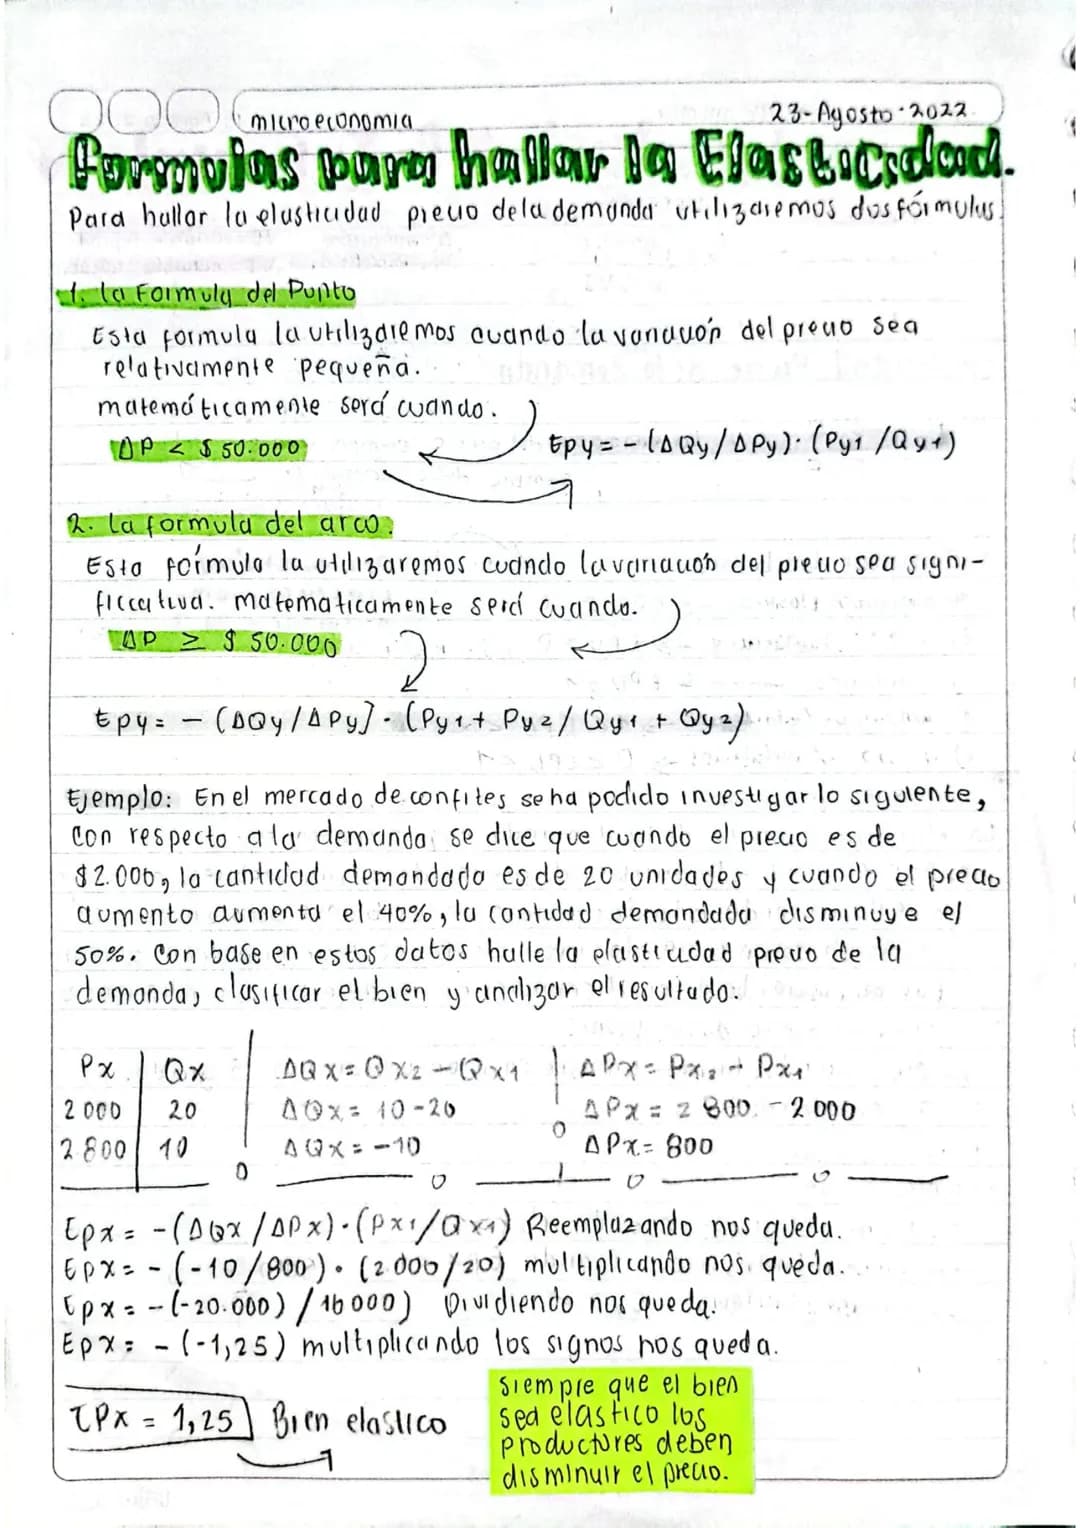 microeconomia
23-Agosto-2022
Formulas para hallar la Elasticidad.
Para hallar la elasticidad precio de la demanda utilizaremos dos fórmulas:
1. La Formula del Punto
Esta formula la utilizaremos cuando la variación del precio sea
relativamente pequeña.
matemáticamente será cuando.
ΔP < $ 50.000
Epy = - (ΔQy/ΔPy) · (Py1/Qy1)
2. La formula del arco.
Esta fórmula la utilizaremos cuando la variación del precio sea signi-
ficcativa. matematicamente será cuando.
ΔP ≥ $ 50.000
Epy = - (ΔQy/ΔPy] · (Py1 + Py2 / Qy1 + Qy2)
Ejemplo: En el mercado de confites se ha podido investigar lo siguiente,
con respecto a la demanda se dice que cuando el precio es de
$2.000, la cantidad demandada es de 20 unidades y cuando el precio
aumento aumenta el 40%, la cantidad demandada disminuye el
50%. Con base en estos datos halle la elasticidad precio de la
demanda, clasificar el bien y analizar el resultado.
Px | Qx
2 000 | 20
2 800 | 10
ΔQx = Qx2 - Qx1
ΔQx = 10-20
ΔQx = -10
ΔPx = Px2 - Px1
ΔPx = 2 800. - 2 000
ΔPx = 800
Epx = -(ΔQx/ΔPx) · (Px1/Qx1) Reemplazando nos queda.
Epx = - (-10/800) · (2.000/20) multiplicando nos queda.
Epx = -(-20.000) / 16 000) Dividiendo nos queda.
Epx = - (-1,25) multiplicando los signos nos queda.
EPx = 1,25 Bien elastico
Siempre que el bien
sea elastico los
productores deben
disminuir el precio.